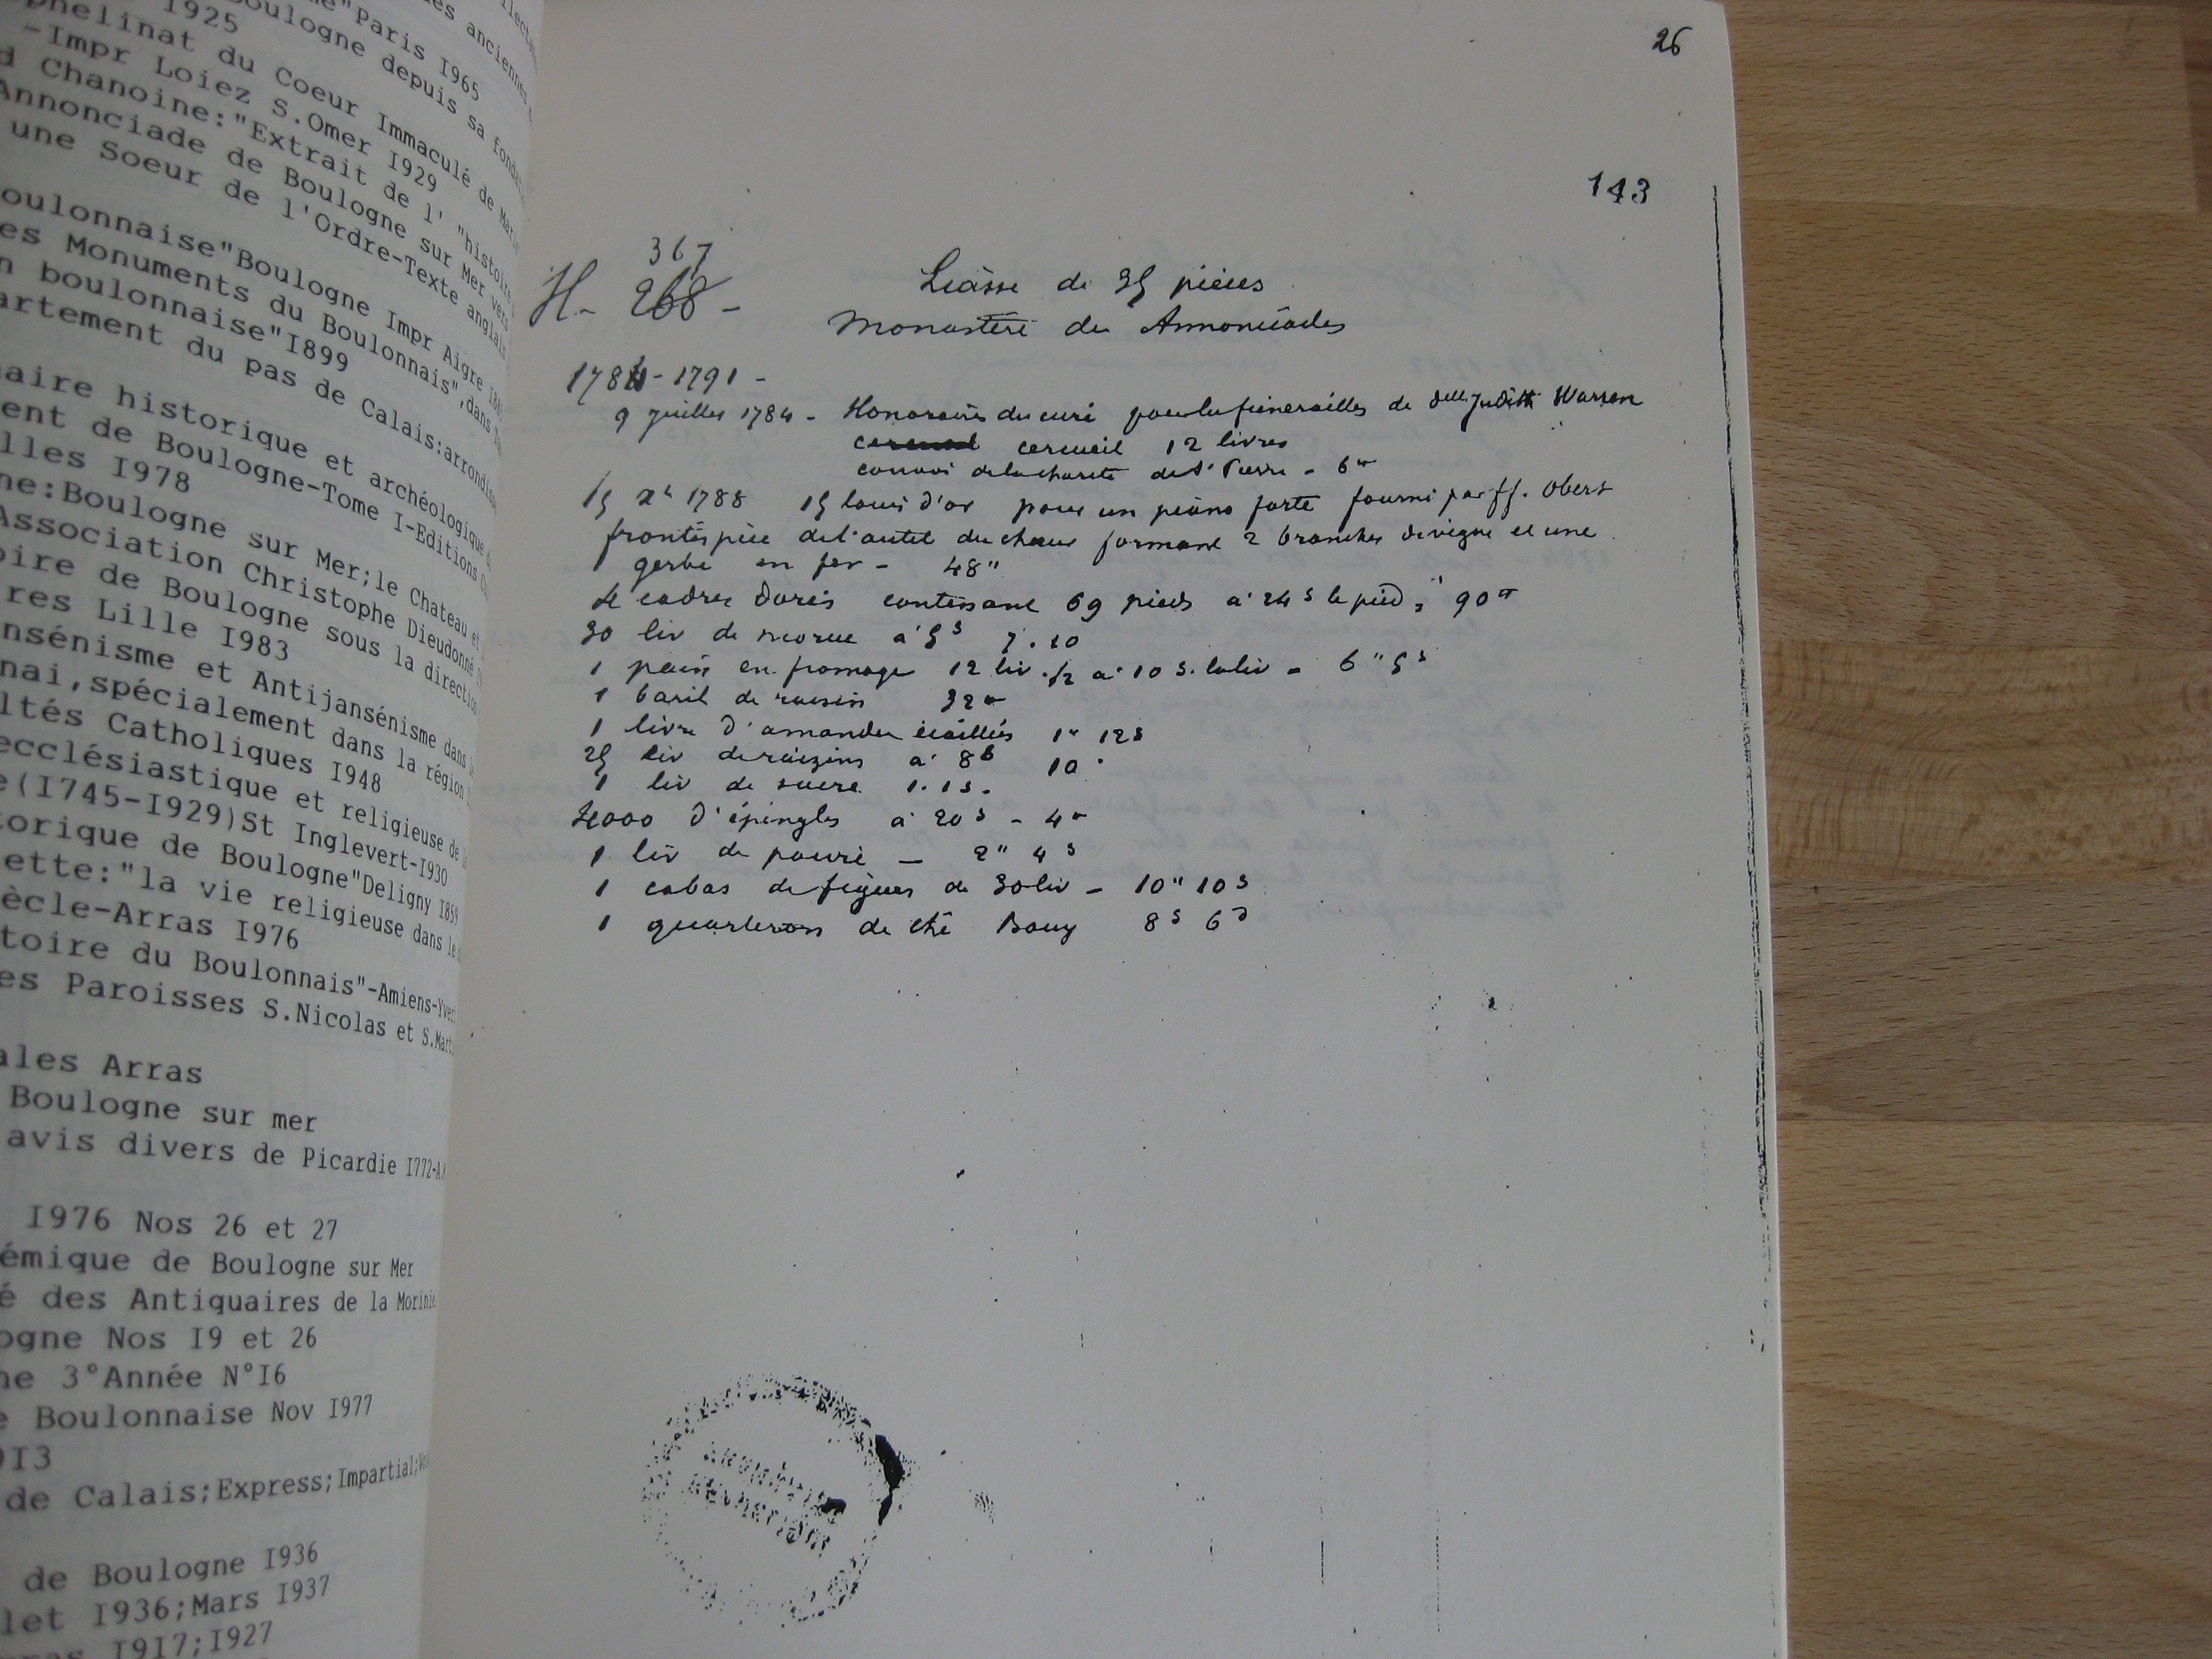 1925
"Paris 1965
Boulogne depuis sa
du Coeur Immaculé de
-Impr Loiez S.Omer I929
Chanoine:"Extrait de l' "histoire
Annonciade de Boulogne sur Mer vers
une Soeur de l'Ordre-Texte anglais
oulonnaise"Boulogne Impr Aigre
es Monuments du Boulonnais",dans
n boulonnaise"I899
artement du pas de Calais;
aire historique et archéologique
ent de Boulogne-Tome I-Editions
lles I978
ne:Boulogne sur Mer;le Chateau et
Association Christophe Dieudonné
oire de Boulogne sous la direction
res Lille I983
nsénisme et Antijansénisme dans
nai,spécialement dans la région
ltés Catholiques I948
ecclésiastique et religieuse de
e(I745-I929)St Inglevert-I930
torique de Boulogne"Deligny I859
ette:"la vie religieuse dans le
ècle-Arras I976
toire du Boulonnais"-Amiens-
es Paroisses S.Nicolas et S.Mart
ales Arras
Boulogne sur mer
avis divers de Picardie I772-
I976 Nos 26 et 27
émique de Boulogne sur Mer
é des Antiquaires de la Morinie
ogne Nos I9 et 26
ne 3°Année N°I6
e Boulonnaise Nov I977
9I3
de Calais;Express;Impartial;
de Boulogne I936
let I936;Mars I937
I9I7;I927
26
143
367
H- 268 -
Liasse de 35 pièces
Monastère des Annonciades
1784 - 1791 -
9 Juillet 1784 - Honoraires du curé pour les funerailles de dlle Judith Warren
cercueil 12 livres
convoi de la charité de St Pierre - 6#
15 xbre 1788 15 louis d'or pour un piano forte fourni par ff. Obert
frontispice de l'autel du choeur formant 2 branches de vigne et une
gerbe en fer - 48"
4 cadres dorés contenant 69 pieds à 24 s le pied, 90#
30 liv de morue à 5s 7.10
1 pain en fromage 12 liv. 1/2 à 10 s. la liv - 6" 5s
1 baril de raisin 32#
1 livre d'amandes écaillées 1# 12s
25 liv de raizins à 8s 10"
1 liv de sucre 1.13.
4000 d'épingles à 20s - 4#
1 liv de poivre - 2" 4s
1 cabas de figues de 30 liv - 10" 10s
1 quarteron de thé Bouy 8s 6d